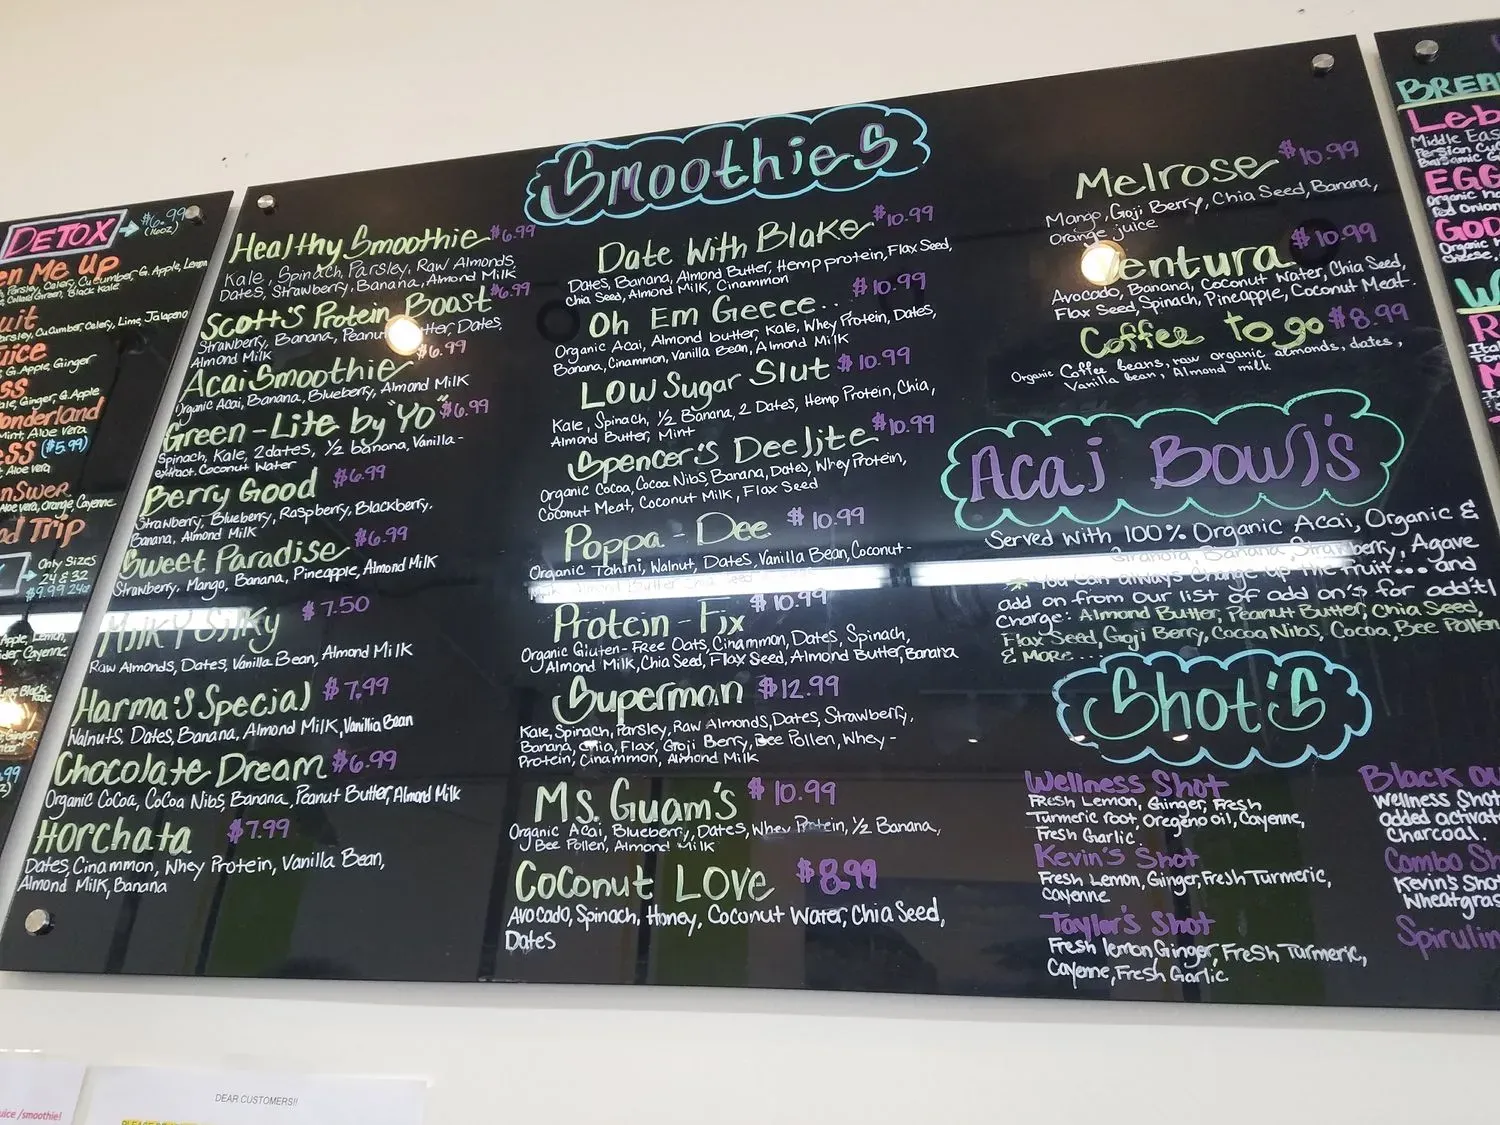 DETOX
$6.99
(16oz)
en Me Up
Parsley, Celery, Cucumber, G. Apple, Lemon
Collard Green, Black Kale
Cucumber, Celery, Lime, Jalapeno
G. Apple, Ginger
Ginger, G. Apple
Mint, Aloe Vera
($5.99)
Aloe vera
Aloe vera, Orange, Cayenne
Trip
Only Sizes
24 & 32
$9.99 24oz
Apple, Lemon,
Cayenne,
Smoothies
Healthy Smoothie $6.99
Kale, Spinach, Parsley, Raw Almonds,
Dates, Strawberry, Banana, Almond Milk
Scott's Protein Boost $6.99
Strawberry, Banana, Peanut Butter, Dates,
Almond Milk
Acai Smoothie $6.99
Organic Acai, Banana, Blueberry, Almond Milk
Green-Lite by "Yo" $6.99
Spinach, Kale, 2dates, 1/2 banana, Vanilla-
extract. Coconut Water
Berry Good $6.99
Strawberry, Blueberry, Raspberry, Blackberry.
Banana, Almond Milk
Sweet Paradise $6.99
Strawberry, Mango, Banana, Pineapple, Almond Milk
Milky Silky $7.50
Raw Almonds, Dates, Vanilla Bean, Almond Milk
Harma's Special $7.99
Walnuts, Dates, Banana, Almond Milk, Vanillia Bean
Chocolate Dream $6.99
Organic CoCoa, CoCoa Nibs, Banana, Peanut Butter, Almond Milk
Horchata $7.99
Dates, Cinammon, Whey Protein, Vanilla Bean,
Almond Milk, Banana
Date With Blake $10.99
Dates, Banana, Almond Butter, Hemp protein, Flax Seed,
Chia Seed, Almond Milk, Cinammon
Oh Em Geeee.. $10.99
Organic Acai, Almond butter, Kale, Whey Protein, Dates,
Banana, Cinammon, Vanilla Bean, Almond Milk
Low Sugar Slut $10.99
Kale, Spinach, 1/2 Banana, 2 Dates, Hemp Protein, Chia,
Almond Butter, Mint
Spencer's Deelite $10.99
Organic Cocoa, Cocoa Nibs, Banana, Dates, Whey Protein,
Coconut Meat, Coconut Milk, Flax Seed
Poppa-Dee $10.99
Organic Tahini, Walnut, Dates, Vanilla Bean, Coconut-
Milk, Almond Butter, Chia Seed
Protein-Fix $10.99
Organic Gluten-Free Oats, Cinammon, Dates, Spinach,
Almond Milk, Chia Seed, Flax Seed, Almond Butter, Banana
Superman $12.99
Kale, Spinach, Parsley, Raw Almonds, Dates, Strawberry,
Banana, Chia, Flax, Goji Berry, Bee Pollen, Whey-
Protein, Cinammon, Almond Milk
Ms. Guam's $10.99
Organic Acai, Blueberry, Dates, Whey Protein, 1/2 Banana,
Bee Pollen, Almond Milk
Coconut Love $8.99
Avocado, Spinach, Honey, Coconut Water, Chia Seed,
Dates
Melrose $10.99
Mango, Goji Berry, Chia Seed, Banana,
Orange juice
Ventura $10.99
Avocado, Banana, Coconut Water, Chia Seed,
Flax Seed, Spinach, Pineapple, Coconut Meat.
Coffee to go $8.99
Organic Coffee beans, raw organic almonds, dates,
Vanilla bean, Almond milk
Acai Bowl's
Served with 100% Organic Acai, Organic &
Granola, Banana, Strawberry, Agave
* You can always change up the fruit... and
add on from our list of add on's for add'tl
Charge: Almond Butter, Peanut Butter, Chia Seed,
Flax Seed, Goji Berry, Cocoa Nibs, Cocoa, Bee Pollen
& More...
Shot's
Wellness Shot
Fresh Lemon, Ginger, Fresh
Turmeric root, Oregeno oil, Cayenne,
Fresh Garlic.
Kevin's Shot
Fresh Lemon, Ginger, Fresh Turmeric,
Cayenne
Taylor's Shot
Fresh lemon, Ginger, Fresh Turmeric,
Cayenne, Fresh Garlic.
Black
Wellness Shot
added activat
Charcoal.
Combo Sh
Kevin's Shot
Wheatgras
Spirulin
BREA
Leb
Middle Eas
Persian Cu
Balsamic G
EGG
Organic
Red Onion
GOD
Organic
cheese,
DEAR CUSTOMERS!!
uice /smoothie!